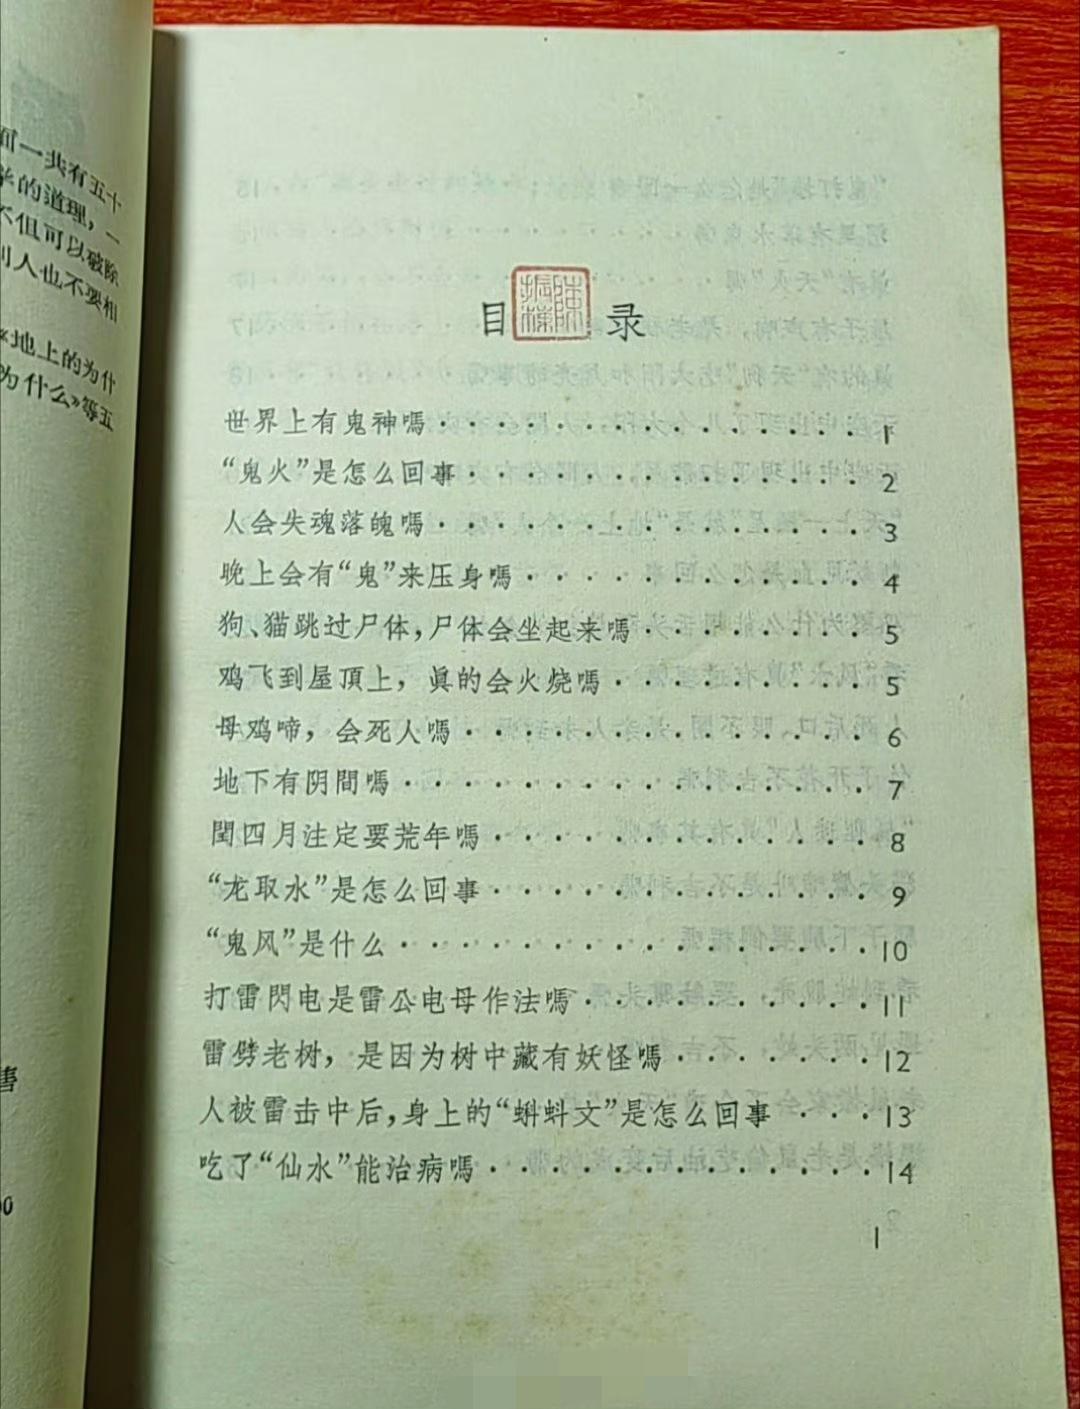 面一共有五十
学的道理，一
不但可以破除
别人也不要相
«地上的为什
为什么»等五
书
00
目录
陈振梁
世界上有鬼神嗎 1
“鬼火”是怎么回事 2
人会失魂落魄嗎 3
晚上会有“鬼”来压身嗎 4
狗、猫跳过尸体，尸体会坐起来嗎 5
鸡飞到屋頂上，眞的会火烧嗎 5
母鸡啼，会死人嗎 6
地下有阴間嗎 7
閏四月注定要荒年嗎 8
“龙取水”是怎么回事 9
“鬼风”是什么 10
打雷閃电是雷公电母作法嗎 11
雷劈老树，是因为树中藏有妖怪嗎 12
人被雷击中后，身上的“蝌蚪文”是怎么回事 13
吃了“仙水”能治病嗎 14
1